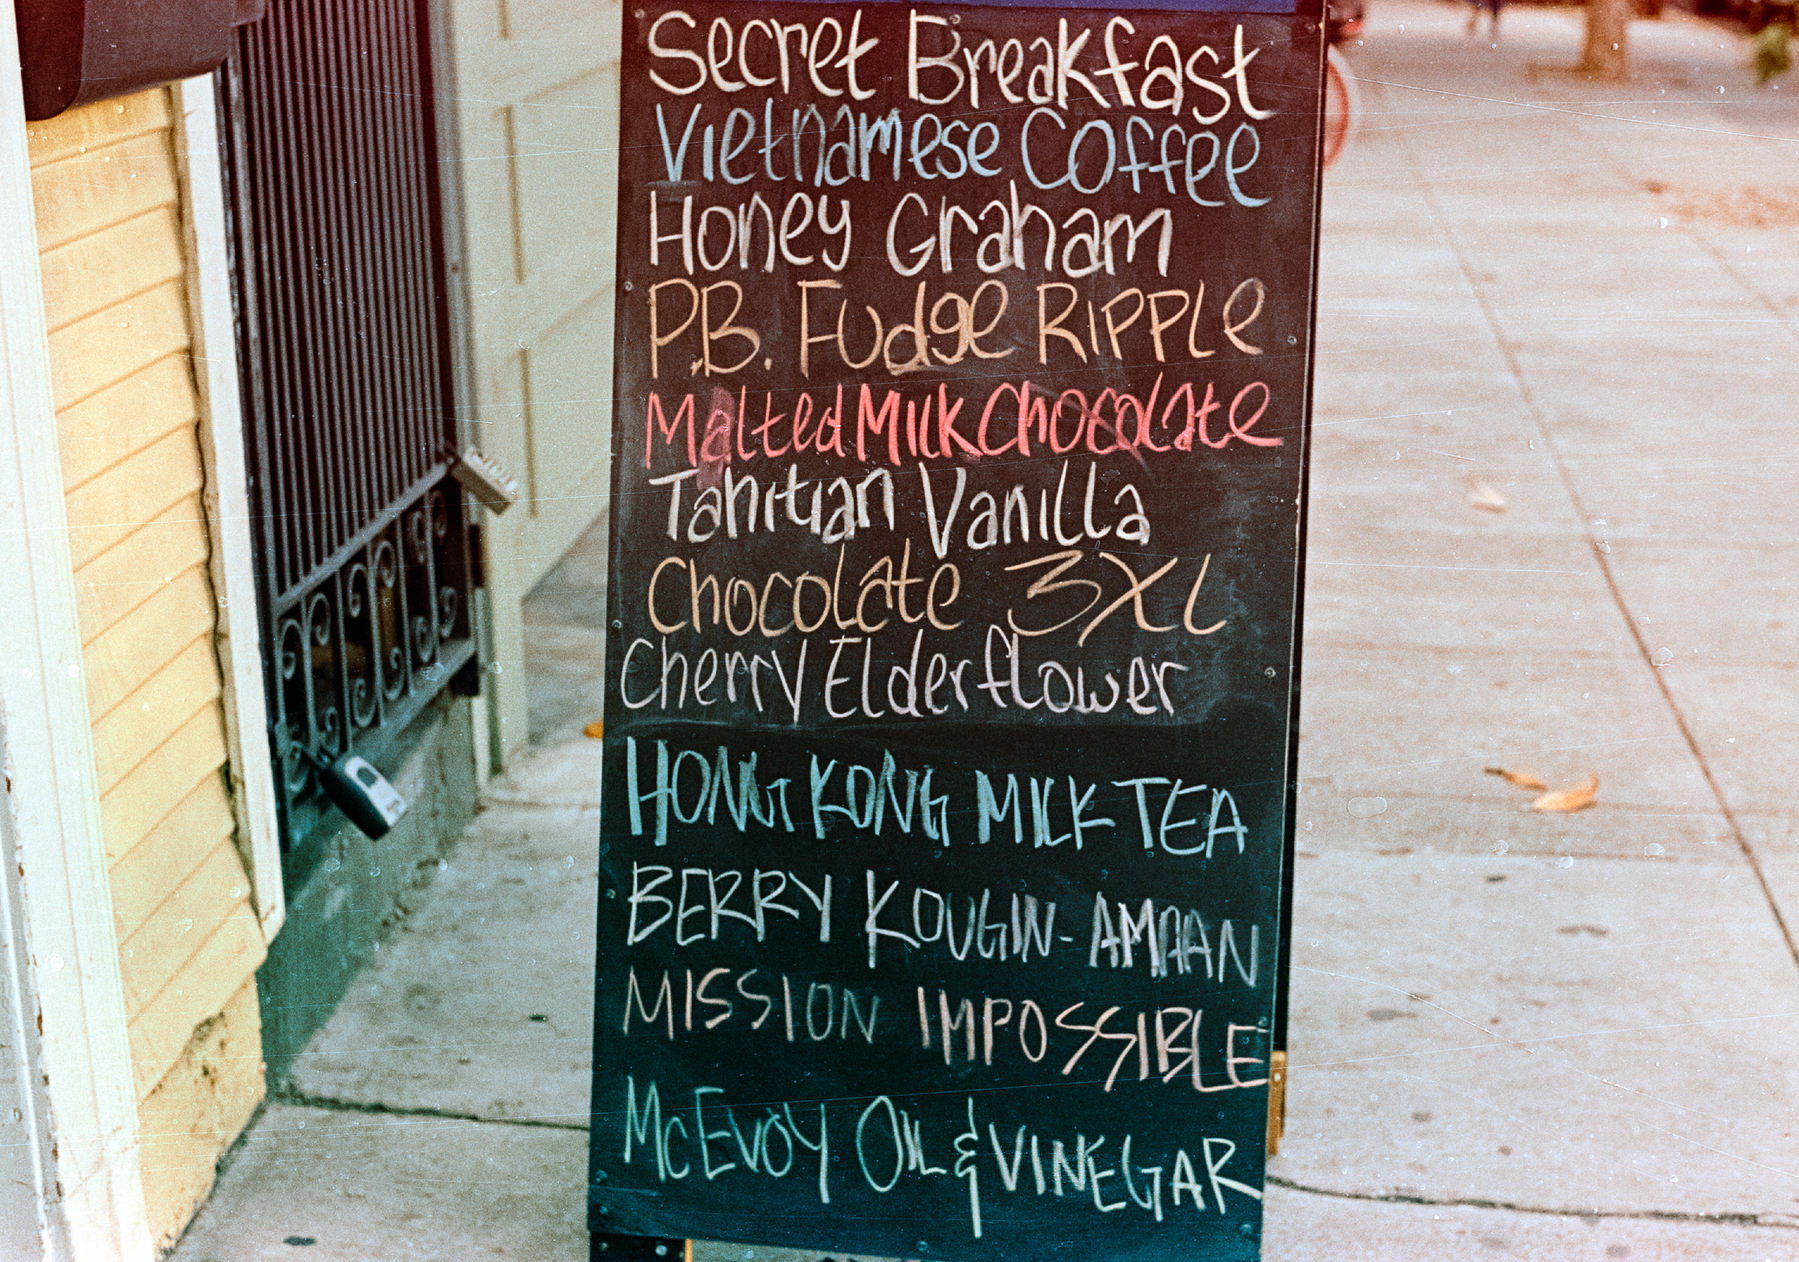 Secret Breakfast
Vietnamese Coffee
Honey Graham
P.B. Fudge Ripple
Malted Milk Chocolate
Tahitian Vanilla
Chocolate 3XL
Cherry Elderflower
HONG KONG MILK TEA
BERRY KOUGIN-AMAAN
MISSION IMPOSSIBLE
McEVOY OIL & VINEGAR